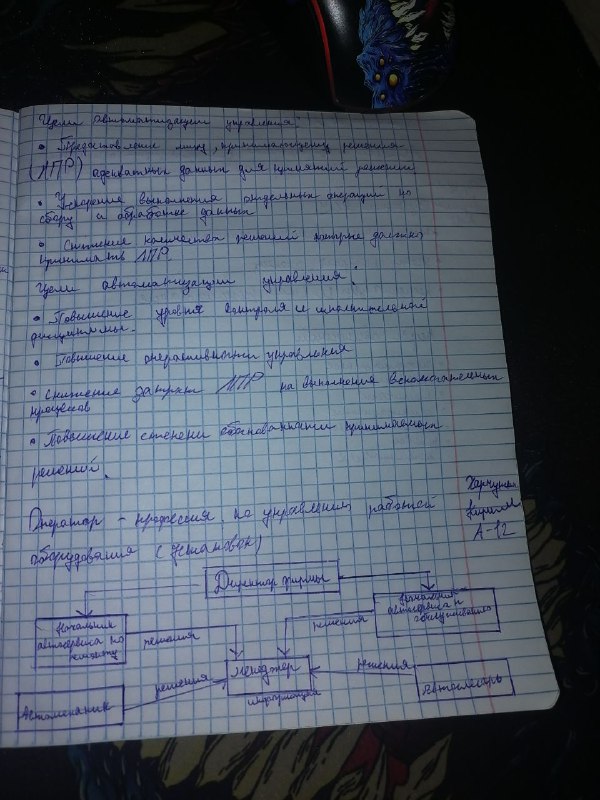 Цели автоматизации управления:
• Предоставление лицу, принимающему решения
(ЛПР) адекватных данных для принятия решений
• Ускорение выполнения отдельных операций по
сбору и обработке данных
• Снижение количества решений которые должно
принимать ЛПР.
Цели автоматизации управления:
• Повышение уровня контроля и исполнительной
дисциплины.
• Повышение оперативности управления
• снижение затрат ЛПР на выполнение вспомогательных
процессов
• Повышение степени обоснованности принимаемых
решений.
Харчунин
Кирилл
А-12
Оператор - профессия по управлению работой
оборудования (установок)
Директор фирмы
Начальник
автосервиса по
ремонту
решения
решения
Начальник
автосервиса по
обслуживанию
Автомеханик
решения
менеджер
информация
решения
автослесарь